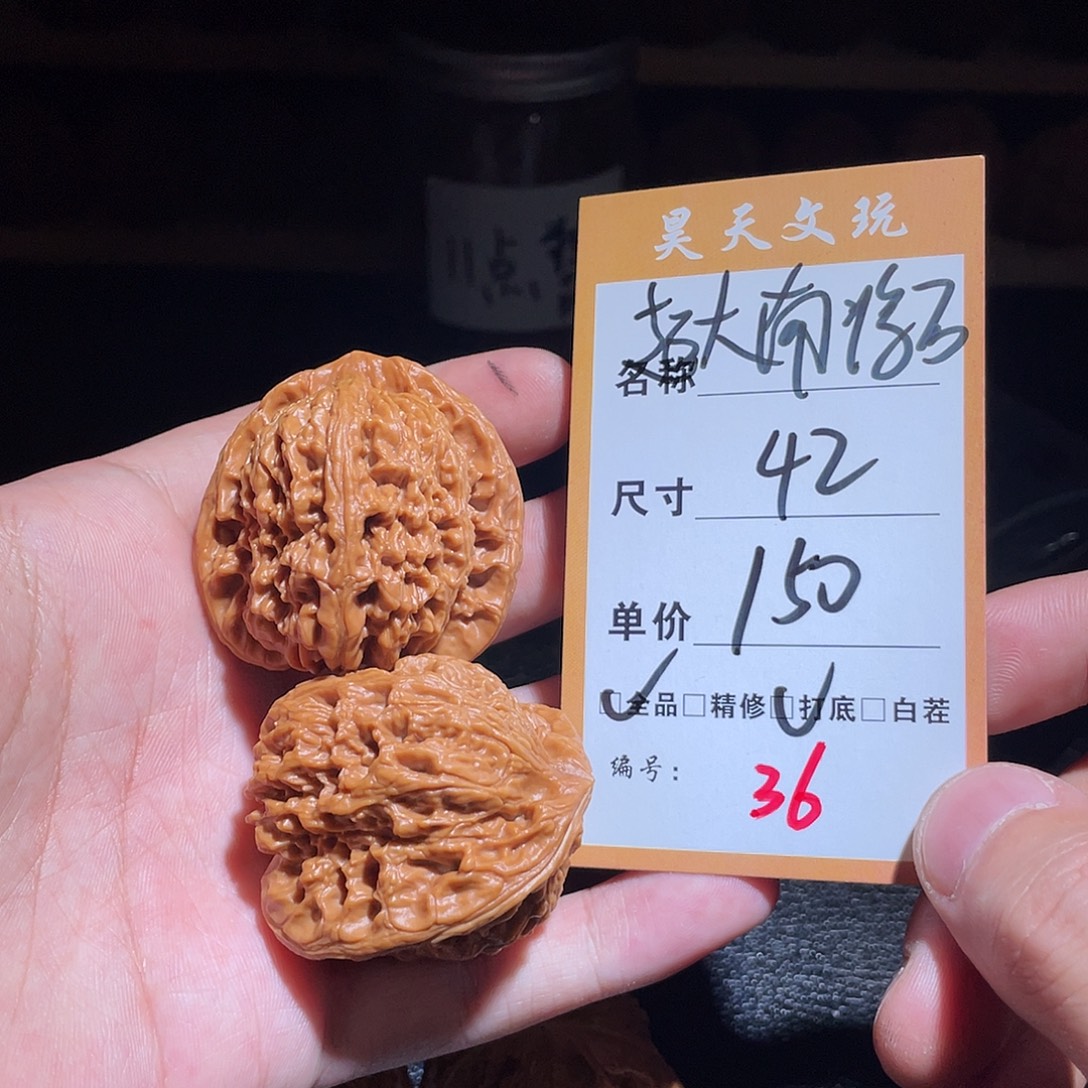 昊天文玩
名称 老大南将石
尺寸 42
单价 150
☑全品□精修☑打底□白茬
编号: 36
11点